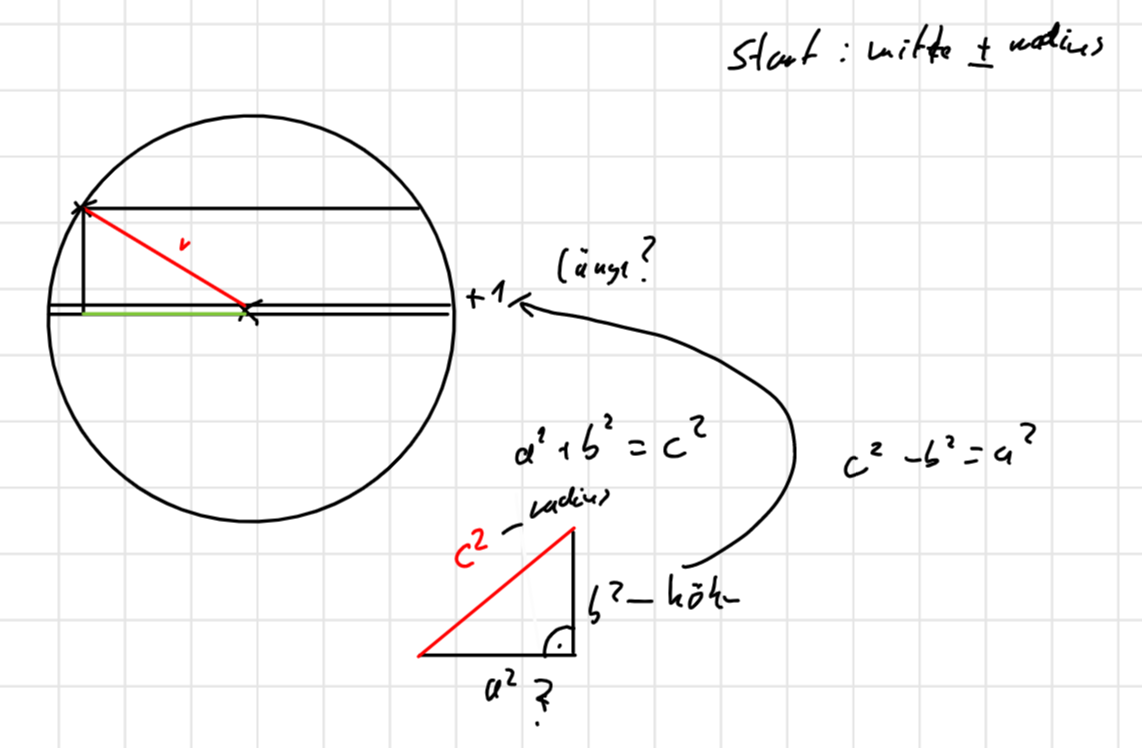 Start : mitte ± radius
r
Länge?
+1
a² + b² = c²
c² - b² = a²
c² - radius
b² - höhe
a² ?